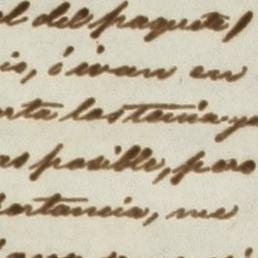 el del paquete)
io, é ivan en
rta las tenia ya
as posible, pero
portancia, me